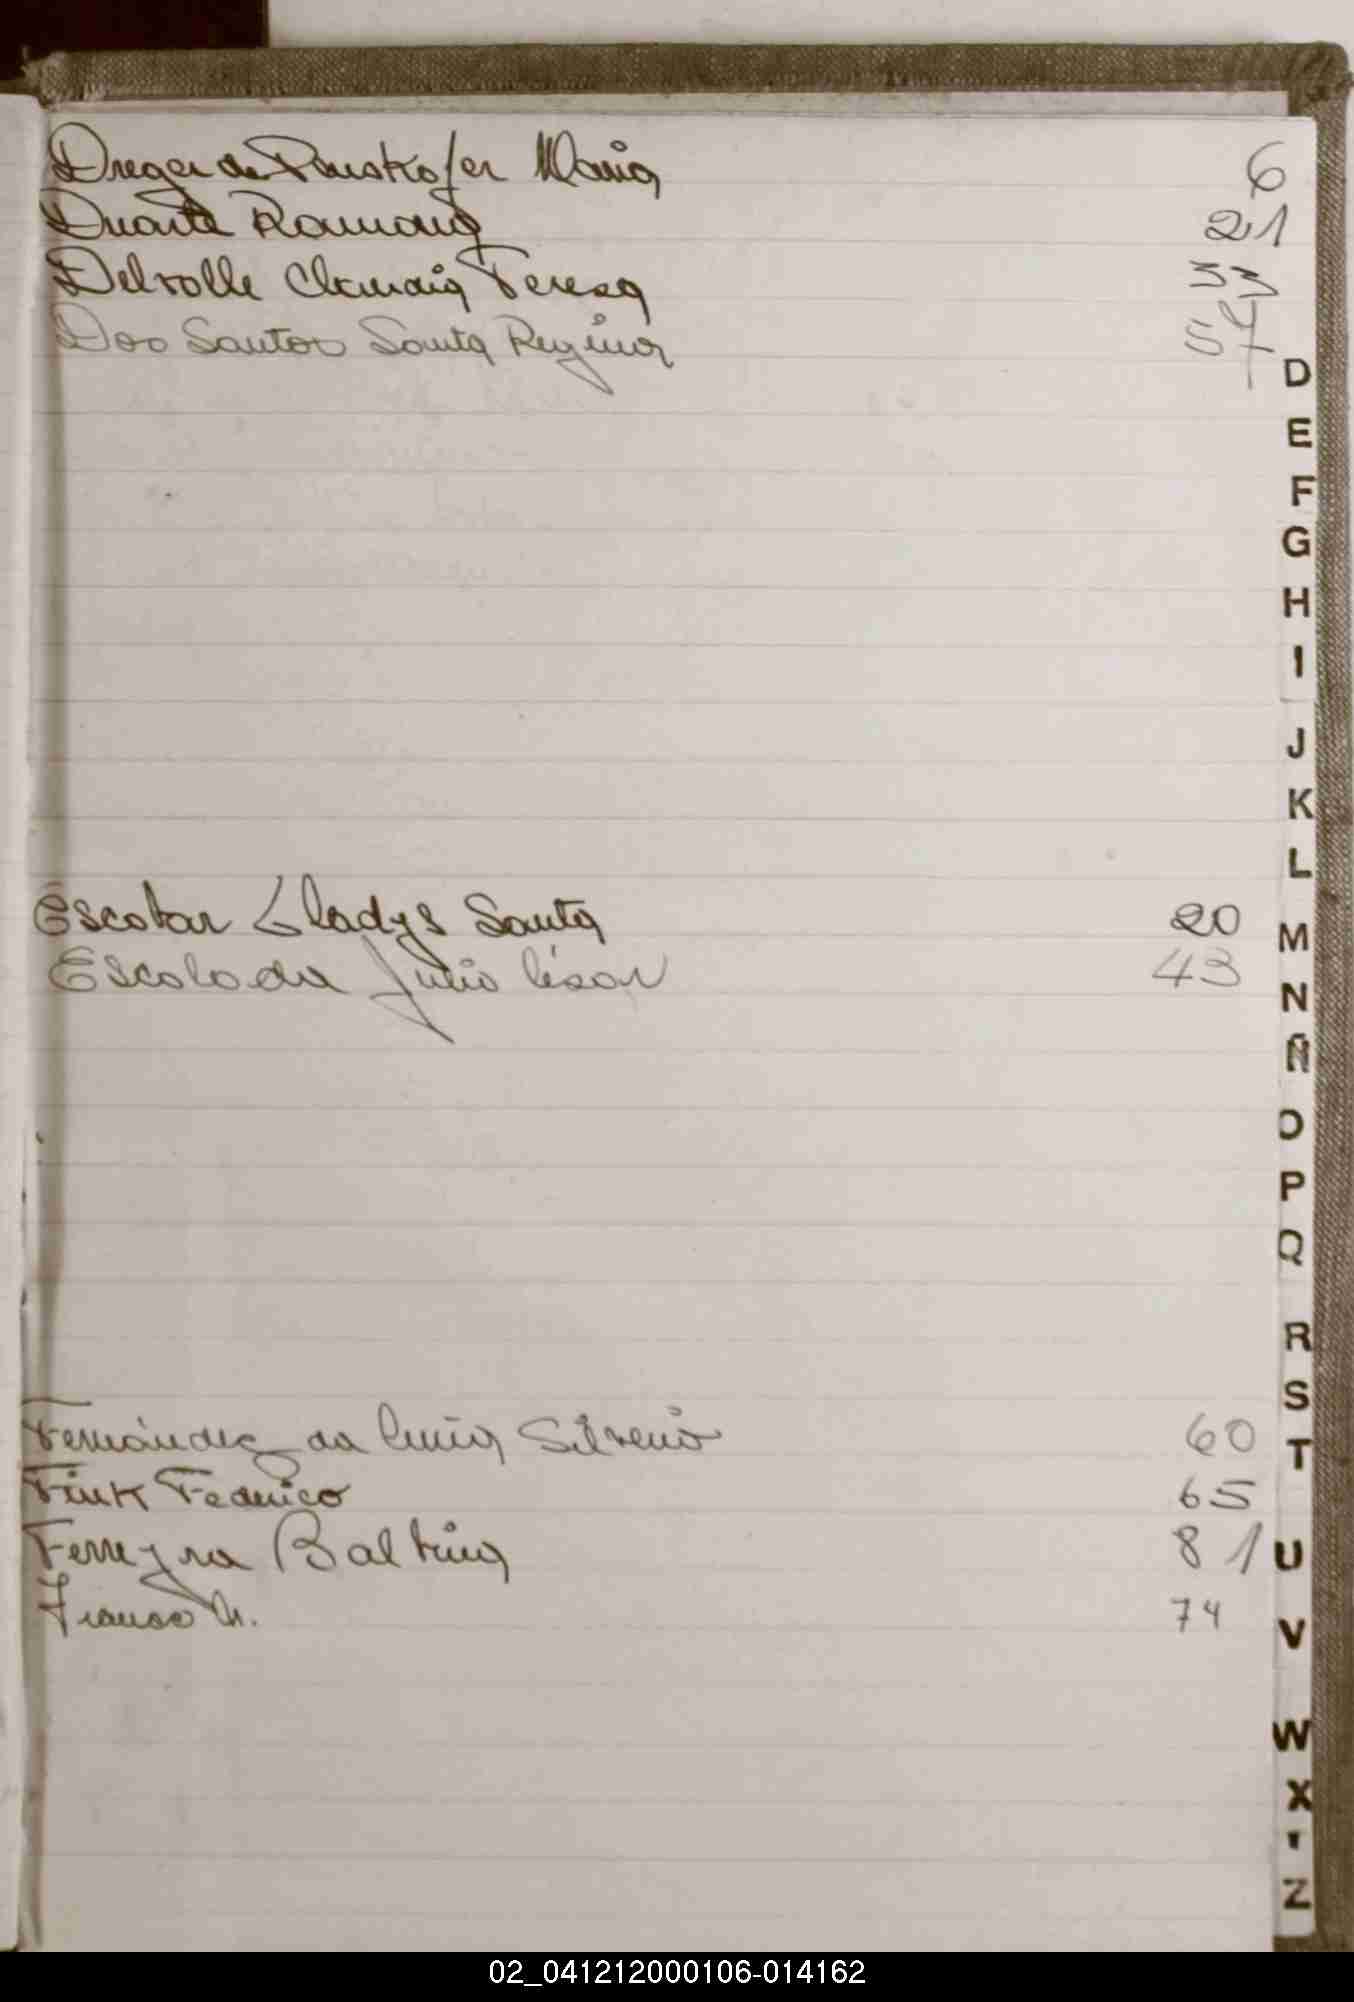 Dreger de Paustkofer Maria 6
Duarte Ramona 21
Delvolle Clemencia Teresa 33
Dos Santos Santa Regina 57
D
E
F
G
H
I
J
K
L
Escobar Gladys Santa 20
M
Escolada Julio César 43
N
Ñ
O
P
Q
R
S
Fernández da Silverio 60
T
Fink Federico 65
Ferreyra Balbina 81
U
Franco M. 74
V
W
X
Z
02_041212000106-014162